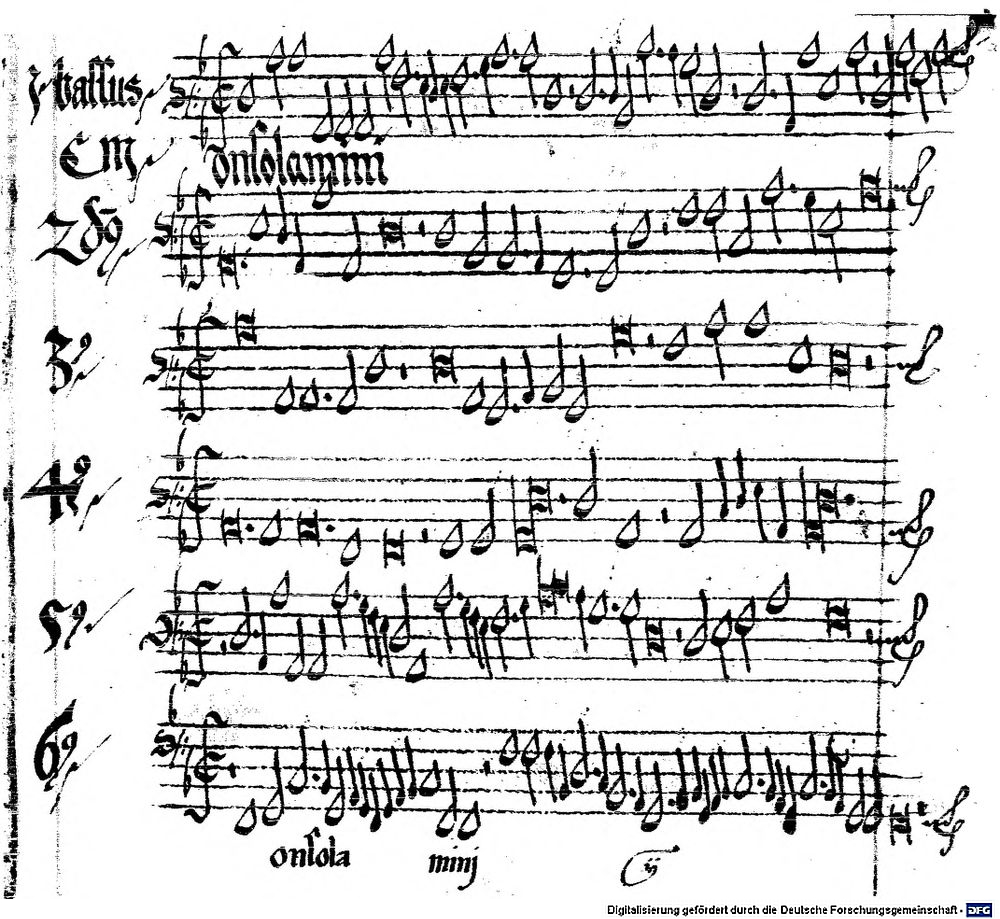 bassus
onsolamini
2dg
3º
4º
5º
6º
onsola minj ij
Digitalisierung gefördert durch die Deutsche Forschungsgemeinschaft - DFG